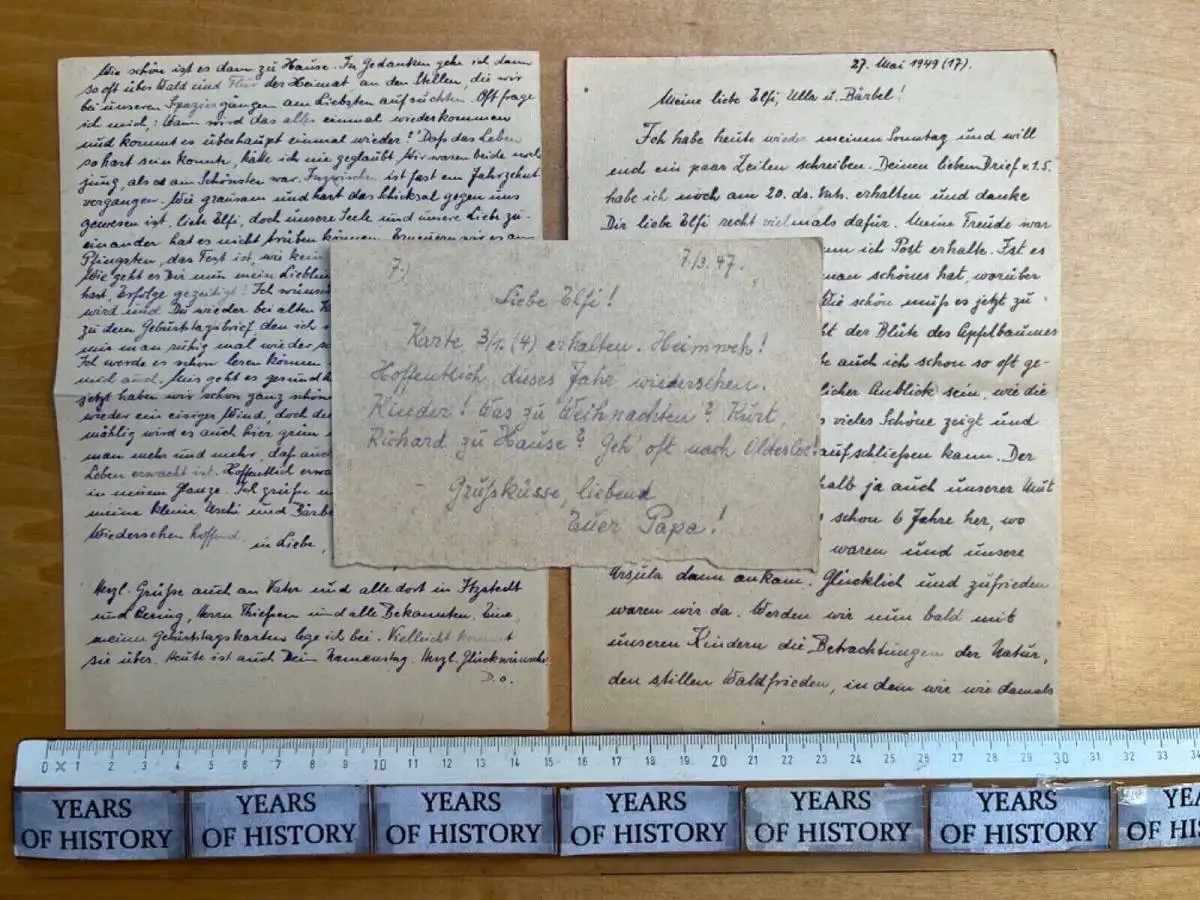 Wie schön ist es dann zu Hause. In Gedanken gehe ich dann
so oft über Wald und Flur der Heimat, an den Stellen, die wir
bei unseren Spaziergängen am Liebsten aufsuchten. Oft frage
ich mich,: Wann wird das alles einmal wiederkommen
und kommt es überhaupt einmal wieder? Daß das Leben
so hart sein konnte, hätte ich nie geglaubt. Wir waren beide noch
jung, als es am Schönsten war. Inzwischen ist fast ein Jahrzehnt
vergangen. Wie grausam und hart das Schicksal gegen uns
gewesen ist, liebe Elfi, doch unsere Seele und unsere Liebe zu-
einander hat es nicht trüben können. Erneuern wir es an
Pfingsten, das Fest ist, wie kein
Wie geht es Dir nun mein Liebling
hast, Erfolge gezeitigt? Ich wünsche
wird und Du wieder bei alten
zu dem Geburtstagsbrief den ich
mir man ruhig mal wieder
Ich werde es schon lesen können
und aud. Mir geht es gesund
jetzt haben wir schon ganz schöne
wieder ein eisiger Wind, doch
mählig wird es auch hier grün
man mehr und mehr, daß auch
Leben erwacht ist. Hoffentlich
in neuem Glanze. Ich grüße
meine kleine Uschi und Bärbel
Wiedersehen hoffend in Liebe,
Herzl. Grüße auch an Vater und alle dort in Itzstedt
und Bering, Herrn Thießen und alle Bekannten. Eine
meiner Geburtstagskarten lege ich bei. Vielleicht kommt
sie über. Heute ist auch Dein Namenstag. Herzl. Glückwünsche
D.o.
7.)
7./3.47.
Liebe Elfi!
Karte 3/1. (4) erhalten. Heimweh!
Hoffentlich, dieses Jahr wiedersehen.
Kinder! Was zu Weihnachten? Kurt,
Richard zu Hause? Geh' oft nach Oldesloe!
Grußküsse, liebend
Euer Papa!
27. Mai 1949 (17).
Meine liebe Elfi, Ulla u. Bärbel!
Ich habe heute wieder meinen Sonntag und will
euch ein paar Zeilen schreiben. Deinen lieben Brief v. 1.5.
habe ich noch am 20. ds. Mts. erhalten und danke
Dir liebe Elfi recht vielmals dafür. Meine Freude war
ich Post erhalte. Ist es
man schönes hat, worüber
Wie schön muß es jetzt zu
der Blüte des Apfelbaumes
auch ich schon so oft ge-
licher Anblick sein, wie die
vieles Schöne zeigt und
aufschließen kann. Der
halb ja auch unserer Mut
schon 6 Jahre her, wo
waren und unsere
Ursula dann ankam. Glücklich und zufrieden
waren wir da. Werden wir nun bald mit
unseren Kindern die Betrachtungen der Natur,
den stillen Waldfrieden, in dem wir wie damals
0 1 2 3 4 5 6 7 8 9 10 11 12 13 14 15 16 17 18 19 20 21 22 23 24 25 26 27 28 29 30 31 32 33 34
YEARS OF HISTORY YEARS OF HISTORY YEARS OF HISTORY YEARS OF HISTORY YEARS OF HISTORY YEARS OF HISTORY